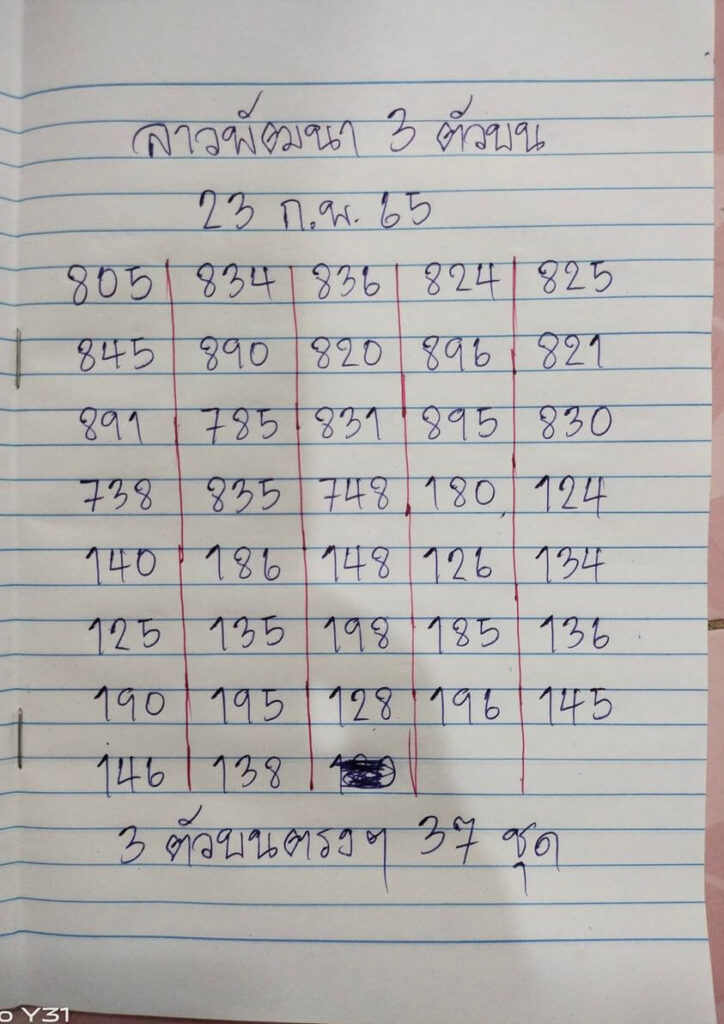 ลาวพัฒนา 3 ตัวบน
23 ก.พ. 65
805 834 836 824 825
845 890 820 896 821
891 785 831 895 830
738 835 748 180 124
140 186 148 126 134
125 135 198 185 136
190 195 128 196 145
146 138
3 ตัวบนตรงๆ 37 ชุด
Y31